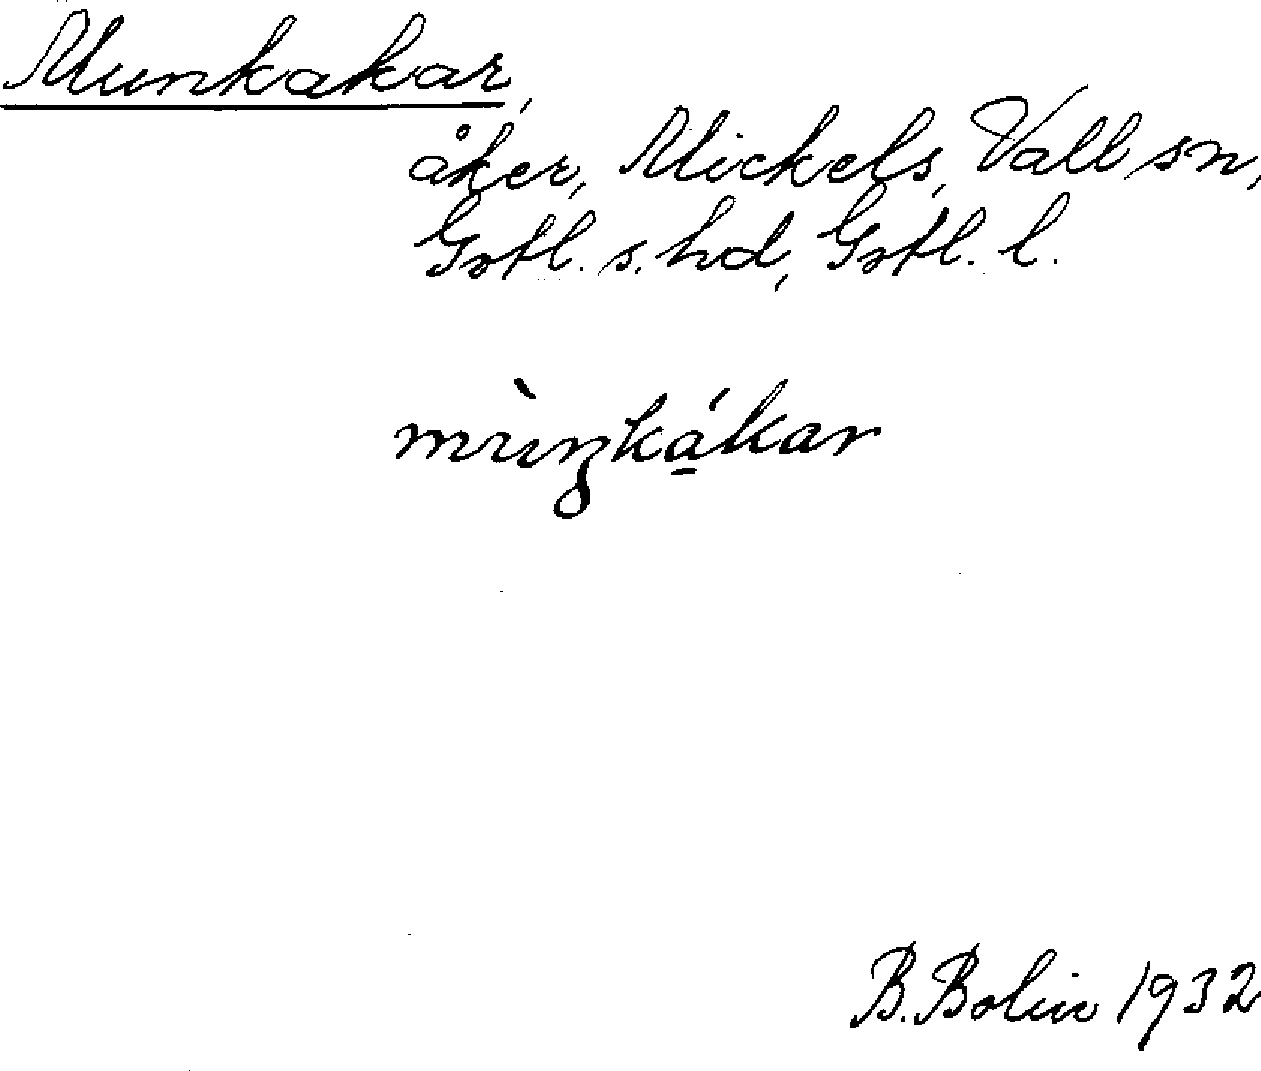 Munkakar,
åker, Mickels, Vall sn,
Gotl. s. hd, Gotl. l.
mùŋká̱kar
B. Bolin 1932